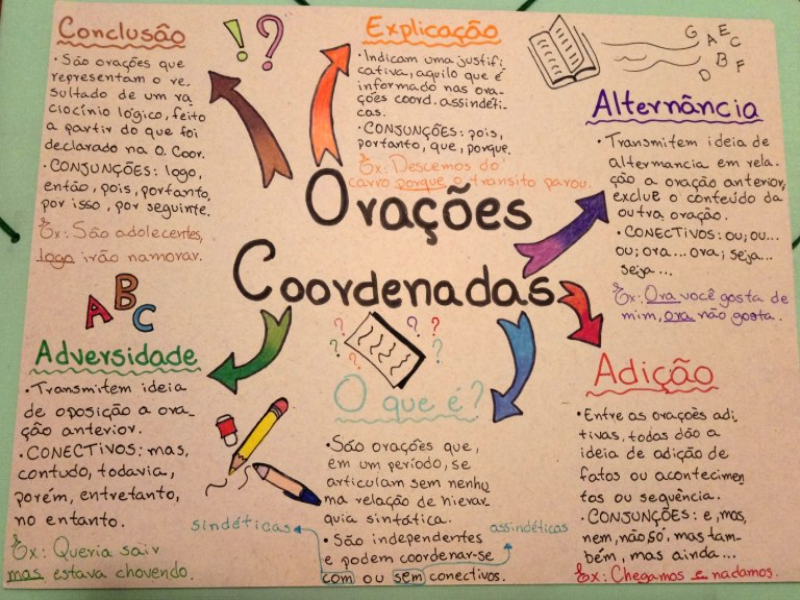 Conclusão
• São orações que
representam o re_
sultado de um ra_
ciocínio lógico, feito
a partir do que foi
declarado na O. Coor.
• CONJUNÇÕES: logo,
então, pois, portanto,
por isso, por seguinte.
Ex: São adolecentes,
logo irão namorar.
!?
Explicação
• Indicam uma justifi_
cativa, aquilo que é
informado nas ora_
ções coord. assindéti_
cas.
• CONJUNÇÕES: pois,
portanto, que, porque.
Ex: Descemos do
carro porque o transito parou.
G A E C
D B F
Alternância
• Transmitem ideia de
altermancia em rela_
ção a oração anterior,
exclue o conteúdo da
outra oração.
• CONECTIVOS: ou; ou...
ou; ora... ora; seja...
seja...
Ex: Ora você gosta de
mim, ora não gosta.
Orações
Coordenadas
A B C
Adversidade
• Transmitem ideia
de oposição a ora_
ção anterior.
• CONECTIVOS: mas,
contudo, todavia,
porém, entretanto,
no entanto.
Ex: Queria sair
mas estava chovendo.
? ? ? ? ? ?
O que é?
• São orações que,
em um período, se
articulam sem nenhu
ma relação de hierar_
quia sintática.
• São independentes
e podem coordenar-se
com ou sem conectivos.
sindéticas
assindéticas
Adição
• Entre as orações adi_
tivas, todas dão a
ideia de adição de
fatos ou acontecimen
tos ou sequência.
• CONJUNÇÕES: e, mas,
nem, não só, mas tam_
bém, mas ainda...
Ex: Chegamos e nadamos.